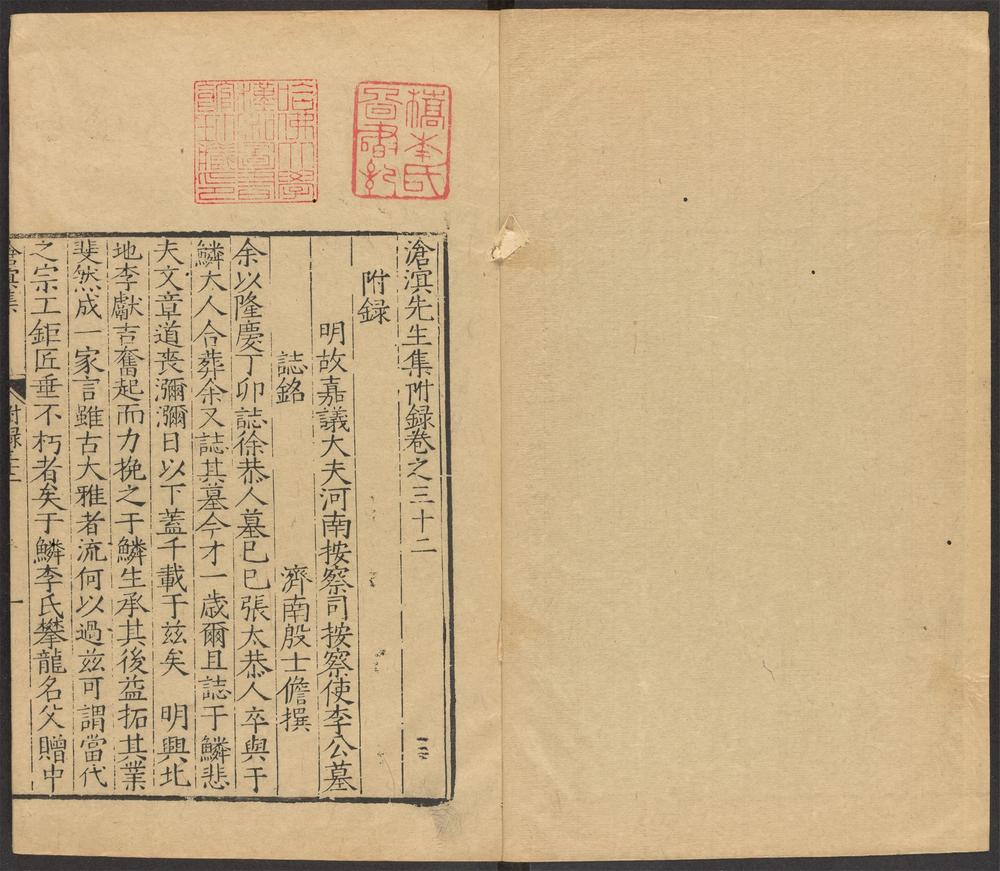 橋本氏
哈佛大學
漢和圖書
館珍藏印
滄溟先生集附録卷之三十二
附録
明故嘉議大夫河南按察司按察使李公墓
誌銘　濟南殷士儋撰
余以隆慶丁卯誌徐恭人墓已巳張太恭人卒與于
鱗大人合葬余又誌其墓今才一歳爾且誌于鱗悲
夫文章道喪瀰瀰日以下蓋千載于兹矣　明興北
地李獻吉奮起而力挽之于鱗生承其後益拓其業
斐然成一家言雖古大雅者流何以過兹可謂當代
之宗工鉅匠垂不朽者矣于鱗李氏攀龍名父贈中
滄溟集　附録　一